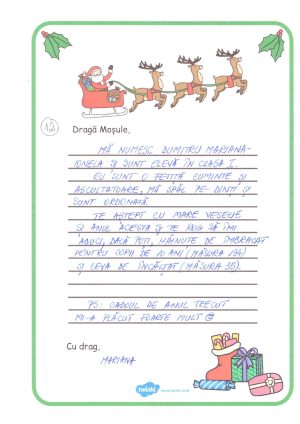 12
Dragă Moșule,
MĂ NUMESC DUMITRU MARIANA-
IONELA ȘI SUNT ELEVĂ ÎN CLASA I.
EU SUNT O FETIȚĂ CUMINTE ȘI
ASCULTĂTOARE, MĂ SPĂL PE DINȚI ȘI
SUNT ORDONATĂ.
TE AȘTEPT CU MARE VESELIE
ȘI ANUL ACESTA ȘI TE ROG SĂ ÎMI
ADUCI, DACĂ POȚI, HĂINUȚE DE ÎMBRĂCAT
PENTRU COPII DE 10 ANI (MĂSURA 134)
ȘI CEVA DE ÎNCĂLȚAT (MĂSURA 35).
PS: CADOUL DE ANUL TRECUT
MI-A PLĂCUT FOARTE MULT ☺
Cu drag,
MARIANA
twinkl
www.twinkl.co.uk